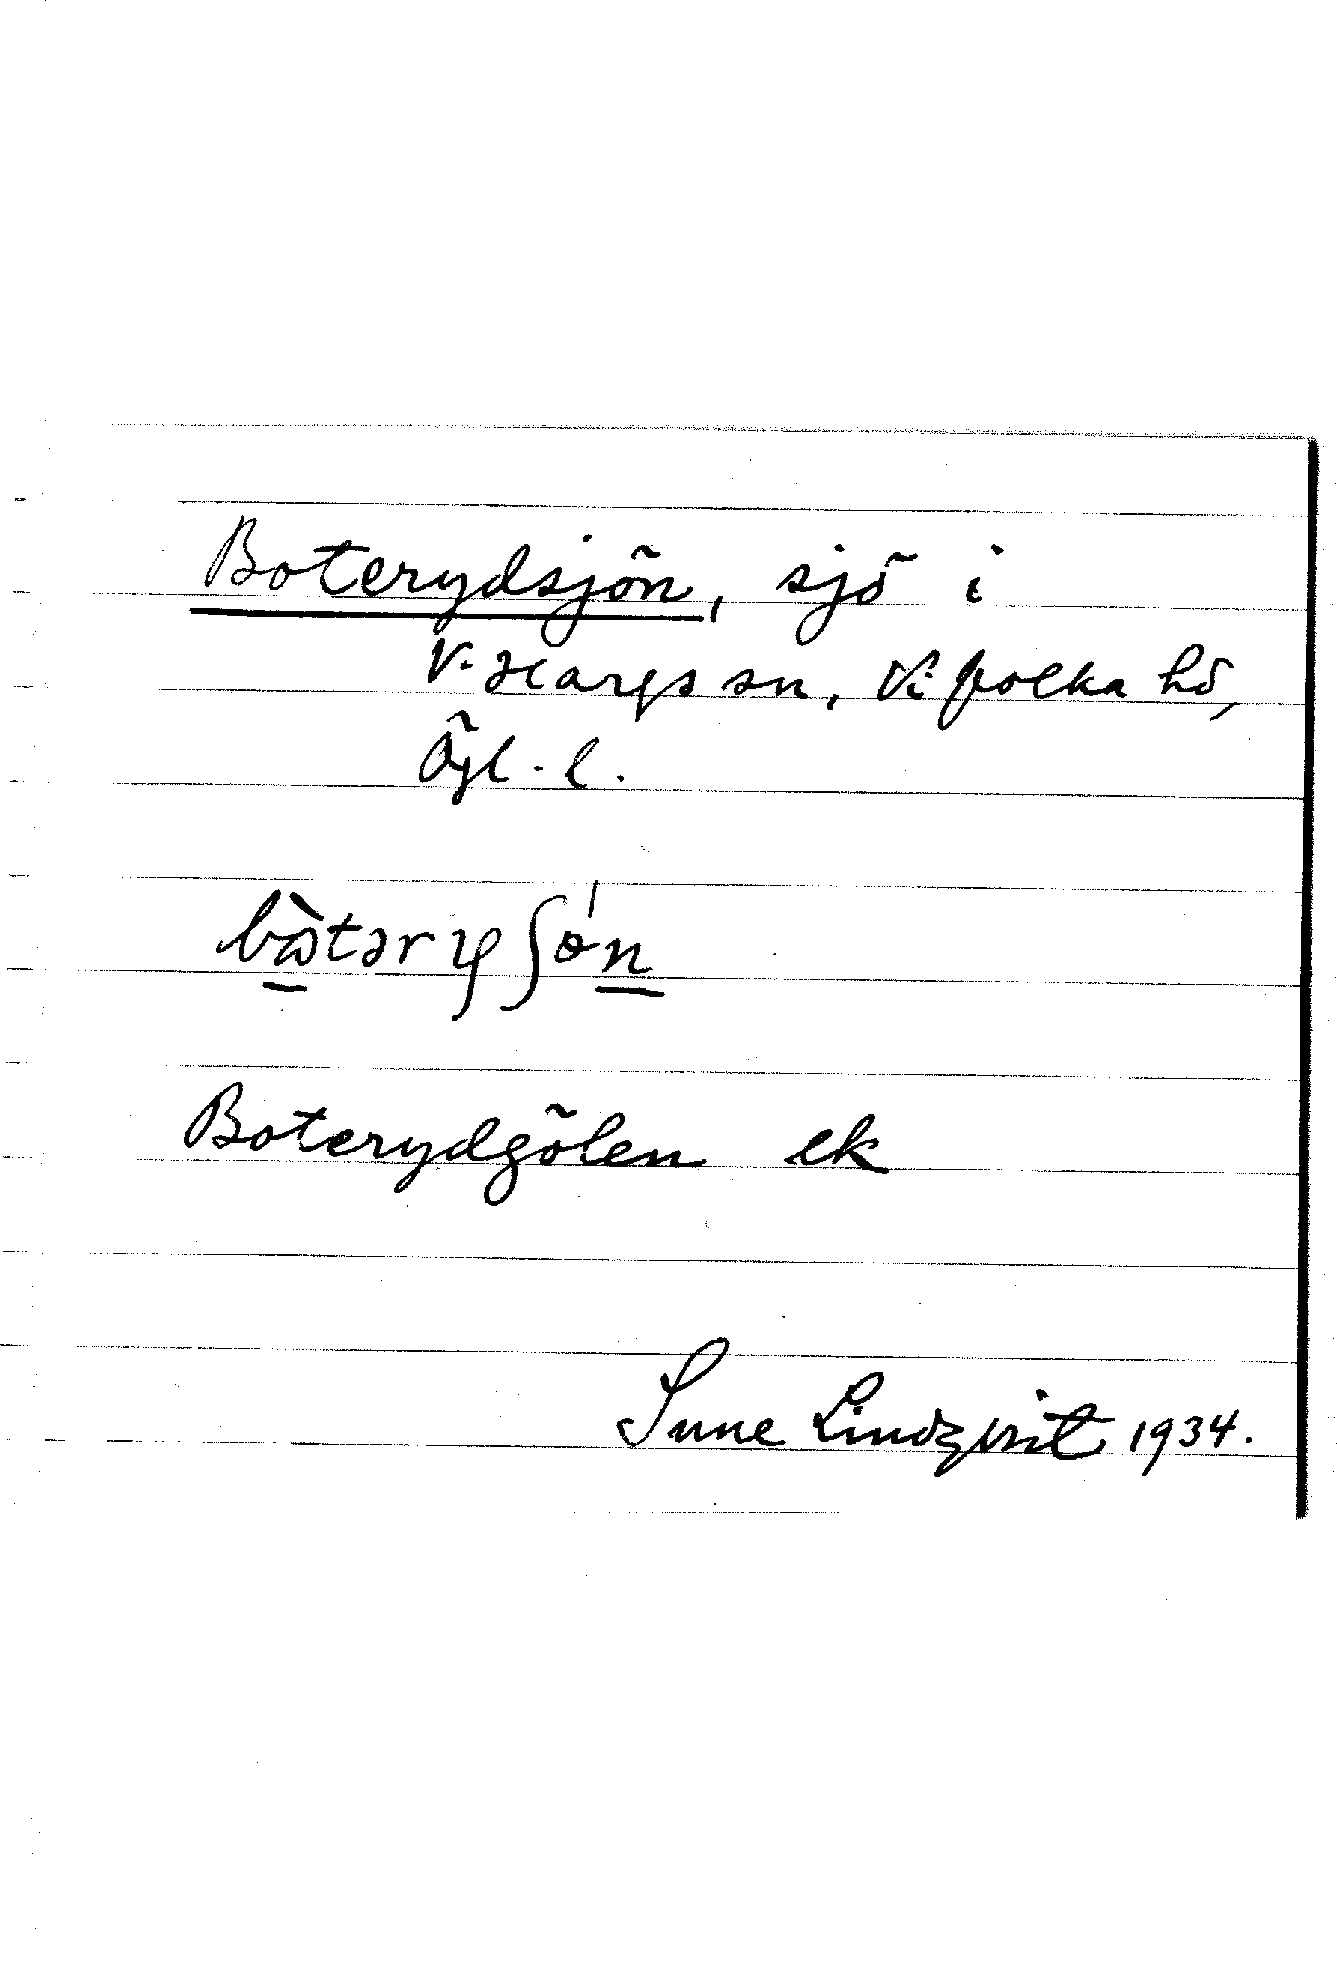 Boterydsjön, sjö i
V. Hargs sn, Vifolka hd,
Ögl. l.
bὼtəryʃǿn
Boterydgölen ek
Sune Lindqvist 1934.